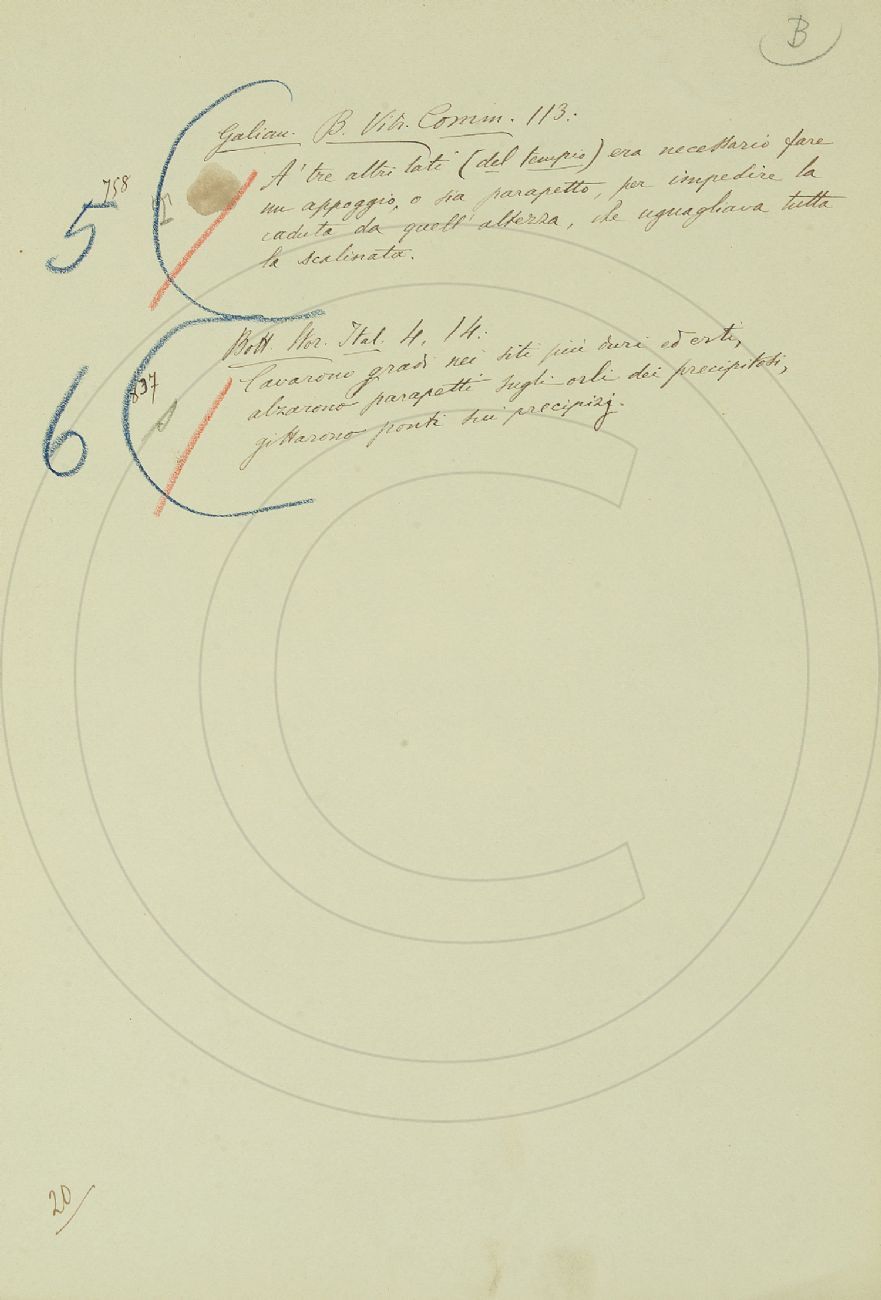 B
758
5
Galian. B. Vitr. Comm. 113:
A' tre altri lati (del tempio) era necessario fare
un appoggio, o sia parapetto, per impedire la
caduta da quell' altezza, che uguagliava tutta
la scalinata.
837
6
Bott. Stor. Ital. 4. 14:
Cavarono gradi nei siti più duri ed erti,
alzarono parapetti sugli orli dei precipitosi,
gittarono ponti sui precipizj.
20